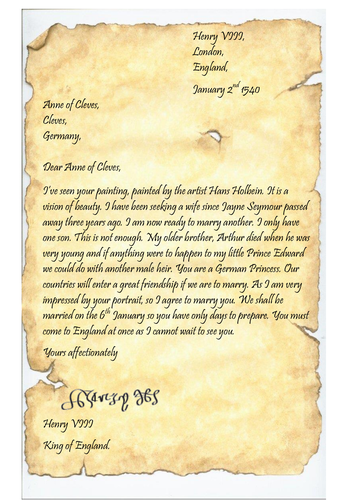 Henry VIII,
London,
England,
January 2nd 1540
Anne of Cleves,
Cleves,
Germany,
Dear Anne of Cleves,
I've seen your painting, painted by the artist Hans Holbein. It is a
vision of beauty. I have been seeking a wife since Jayne Seymour passed
away three years ago. I am now ready to marry another. I only have
one son. This is not enough. My older brother, Arthur died when he was
very young and if anything were to happen to my little Prince Edward
we could do with another male heir. You are a German Princess. Our
countries will enter a great friendship if we are to marry. As I am very
impressed by your portrait, so I agree to marry you. We shall be
married on the 6th January so you have only days to prepare. You must
come to England at once as I cannot wait to see you.
Yours affectionately
Henry VIII
King of England.